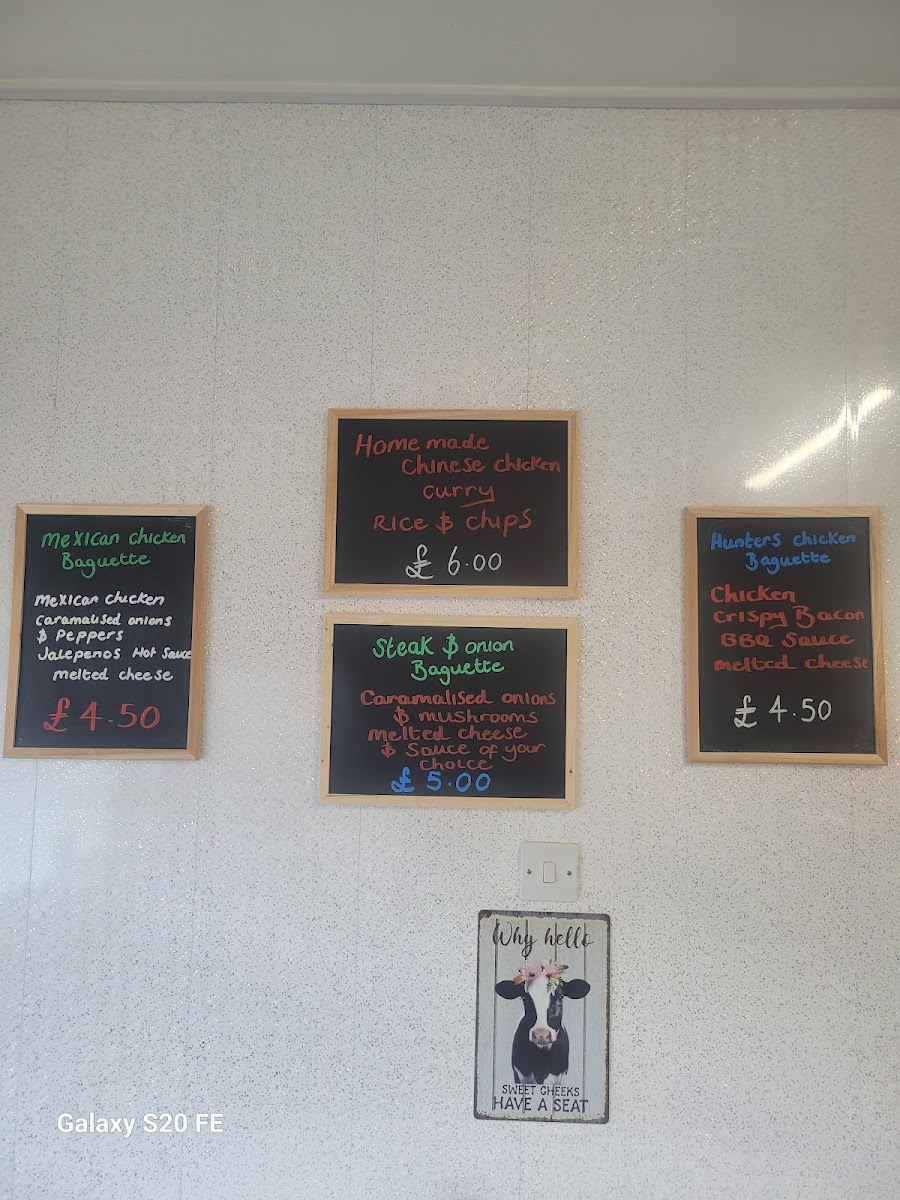 Home made
Chinese chicken
curry
Rice & chips
£ 6.00
Mexican chicken
Baguette
Mexican chicken
caramalised onions
& Peppers
Jalepenos Hot Sauce
melted cheese
£ 4.50
Steak & onion
Baguette
Caramalised onions
& mushrooms
melted cheese
& Sauce of your
choice
£ 5.00
Hunters chicken
Baguette
Chicken
Crispy Bacon
BBQ Sauce
melted cheese
£ 4.50
Why hello
SWEET CHEEKS
HAVE A SEAT
Galaxy S20 FE